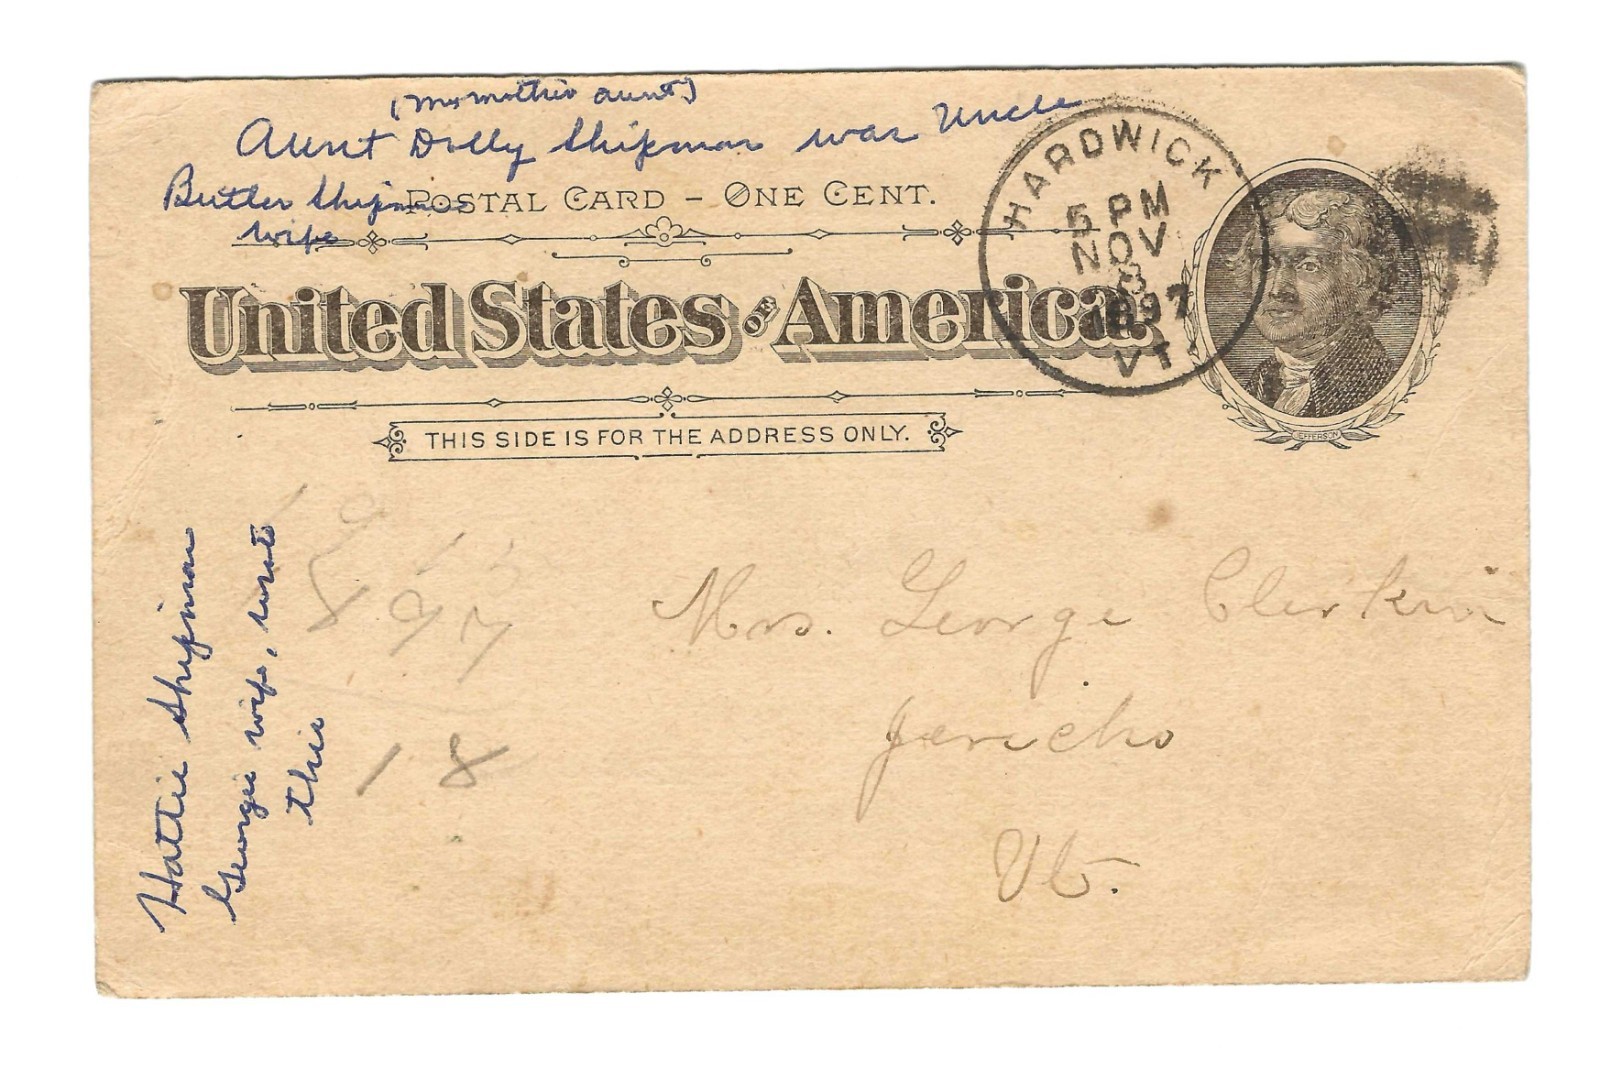 (My mother's aunt)
Aunt Dolly Shipman was Uncle
Butler Shipman
wife
POSTAL CARD – ONE CENT.
United States OF America.
HARDWICK
5 PM
NOV
8
1897
VT.
JEFFERSON
THIS SIDE IS FOR THE ADDRESS ONLY.
Hattie Shipman
George wife, wrote
this
97
18
Mrs. George
Jericho
Vt.